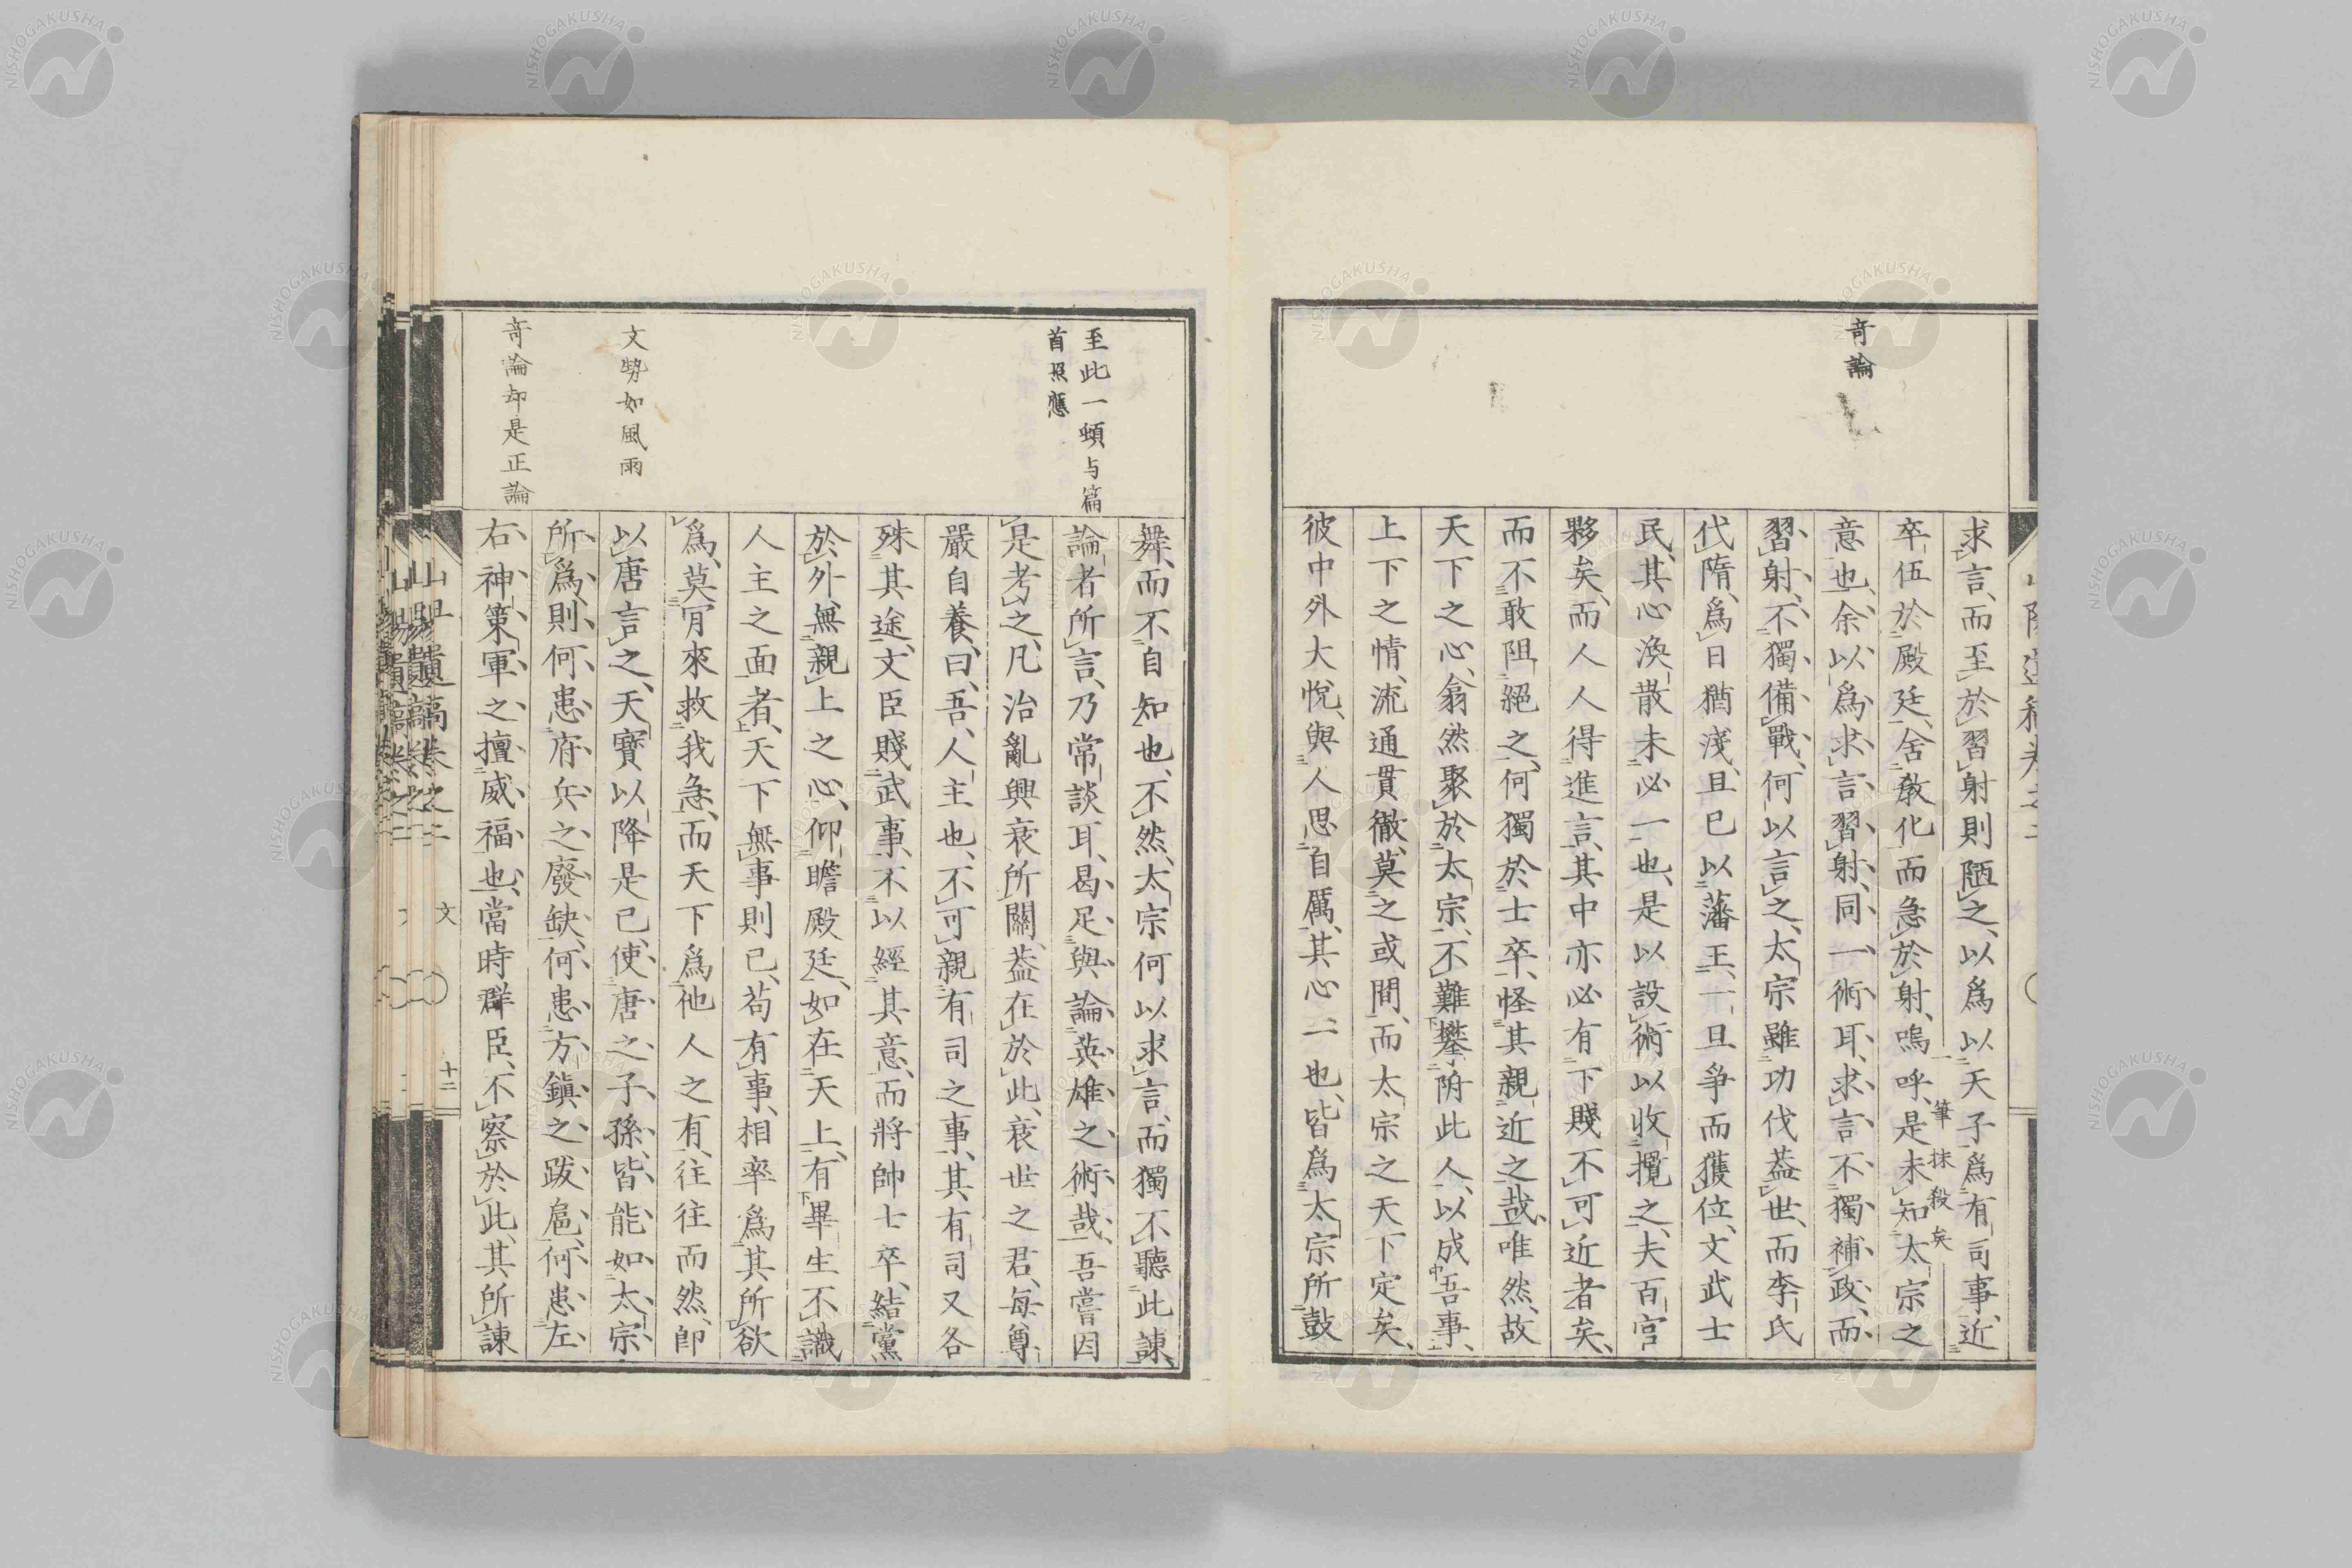 奇論
求言、而至於習射則陋之、以爲以天子爲有司事、近
卒伍於殿廷、舍教化而急於射、嗚呼、是未知太宗之
一筆抹殺矣
意也、余以爲求言習射、同一術耳、求言不獨補政、而
習射、不獨備戰、何以言之、太宗雖功伐蓋世、而李氏
代隋、爲日猶淺、且已以藩王、一旦爭而獲位、文武士
民、其心渙散未必一也、是以設術以收攬之、夫百官
夥矣、而人人得進言、其中亦必有下賤不可近者矣、
而不敢阻絕之、何獨於士卒、怪其親近之哉、唯然、故
天下之心、翕然聚於太宗、不難攀附此人、以成吾事、
上下之情、流通貫徹、莫之或間、而太宗之天下定矣、
彼中外大悅、與人思自厲、其心二也、皆爲太宗所鼓
至此一頓与篇
首照應
文勢如風雨
奇論却是正論
舞、而不自知也、不然、太宗何以求言、而獨不聽此諫、
論者所言、乃常談耳、曷足與論英雄之術哉、吾嘗因
是考之、凡治亂興衰所關、蓋在於此、衰世之君、每尊
嚴自養、曰、吾人主也、不可親有司之事、其有司又各
殊其途、文臣賤武事、不以經其意、而將帥士卒、結黨
於外、無親上之心、仰瞻殿廷、如在天上、有畢生不識
人主之面者、天下無事則已、苟有事、相率爲其所欲
爲、莫肯來救我急、而天下爲他人之有、往往而然、卽
以唐言之、天寶以降是已、使唐之子孫、皆能如太宗
所爲、則何患府兵之廢缺、何患方鎭之跋扈、何患左
右神策軍之擅威福也、當時群臣、不察於此、其所諫
山陽遺稿卷之二 文 十二